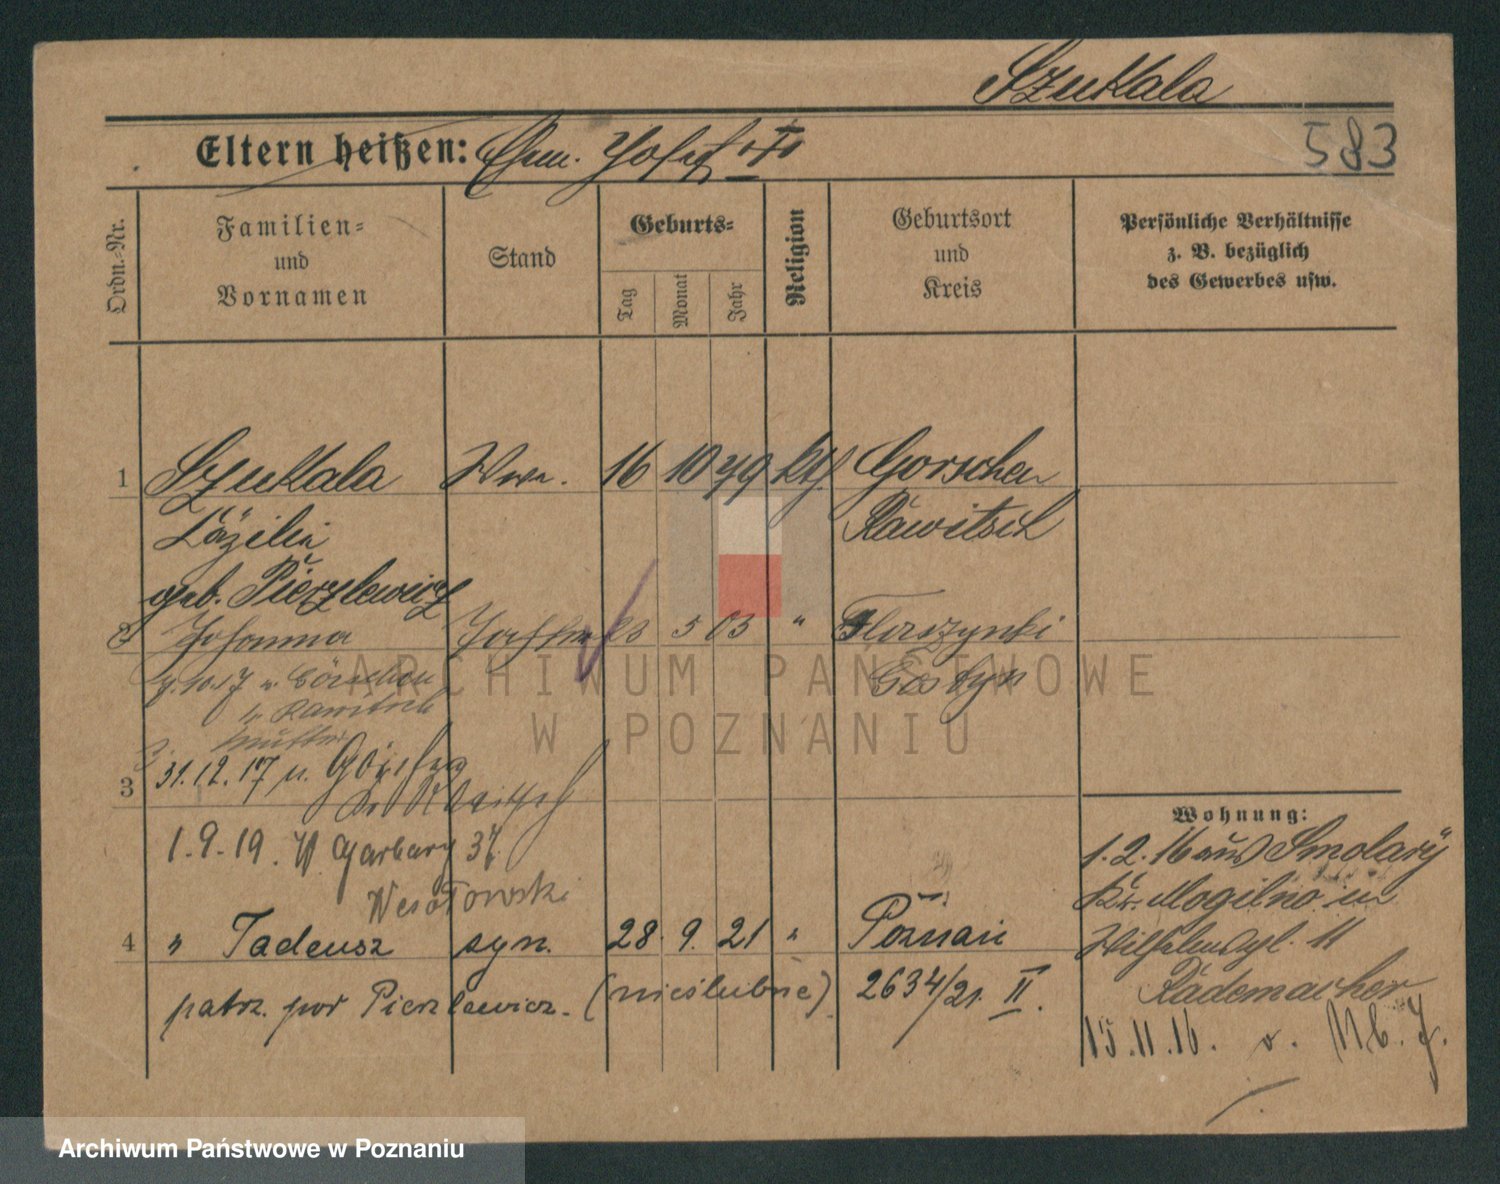 Szukala
583
Eltern heißen: Ehm. Josef +
Ordn.-Nr.
Familien- und Vornamen
Stand
Geburts-
Tag
Monat
Jahr
Religion
Geburtsort und Kreis
Persönliche Verhältnisse z. B. bezüglich des Gewerbes usw.
1 Szukala Wwe. 16 10 79 kth Gorschen
Cäzilie Rawitsch
geb. Pierzlewicz
2 Johanna Tochter 5 03 "
Gostyn
Rawitsch
Mutter
3 31.12.17 n.
1.9.19. W Garbary 37.
Wesołowski
4 " Tadeusz syn. 28. 9. 21 " Poznań
patrz. pod Pierzlewicz. (nieślubne) 2634/21. II.
Wohnung:
1.2.16 aus Smolary
Kr. Mogilno in
Wilhelmspl. 11
Rademacher
15.11.16. v.
ARCHIWUM PAŃSTWOWE
W POZNANIU
Archiwum Państwowe w Poznaniu